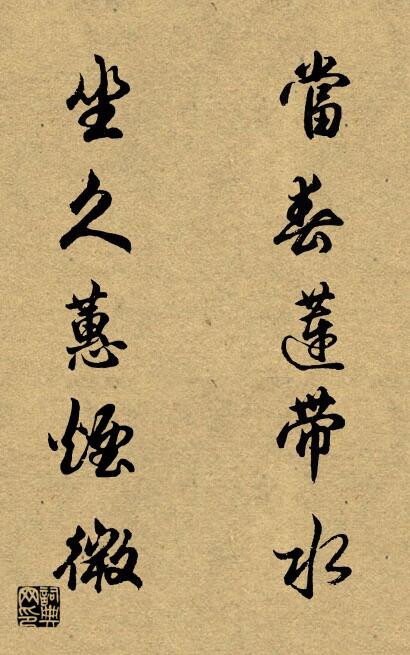 當春蓮帶水
坐久蕙煙微
詞典
网印